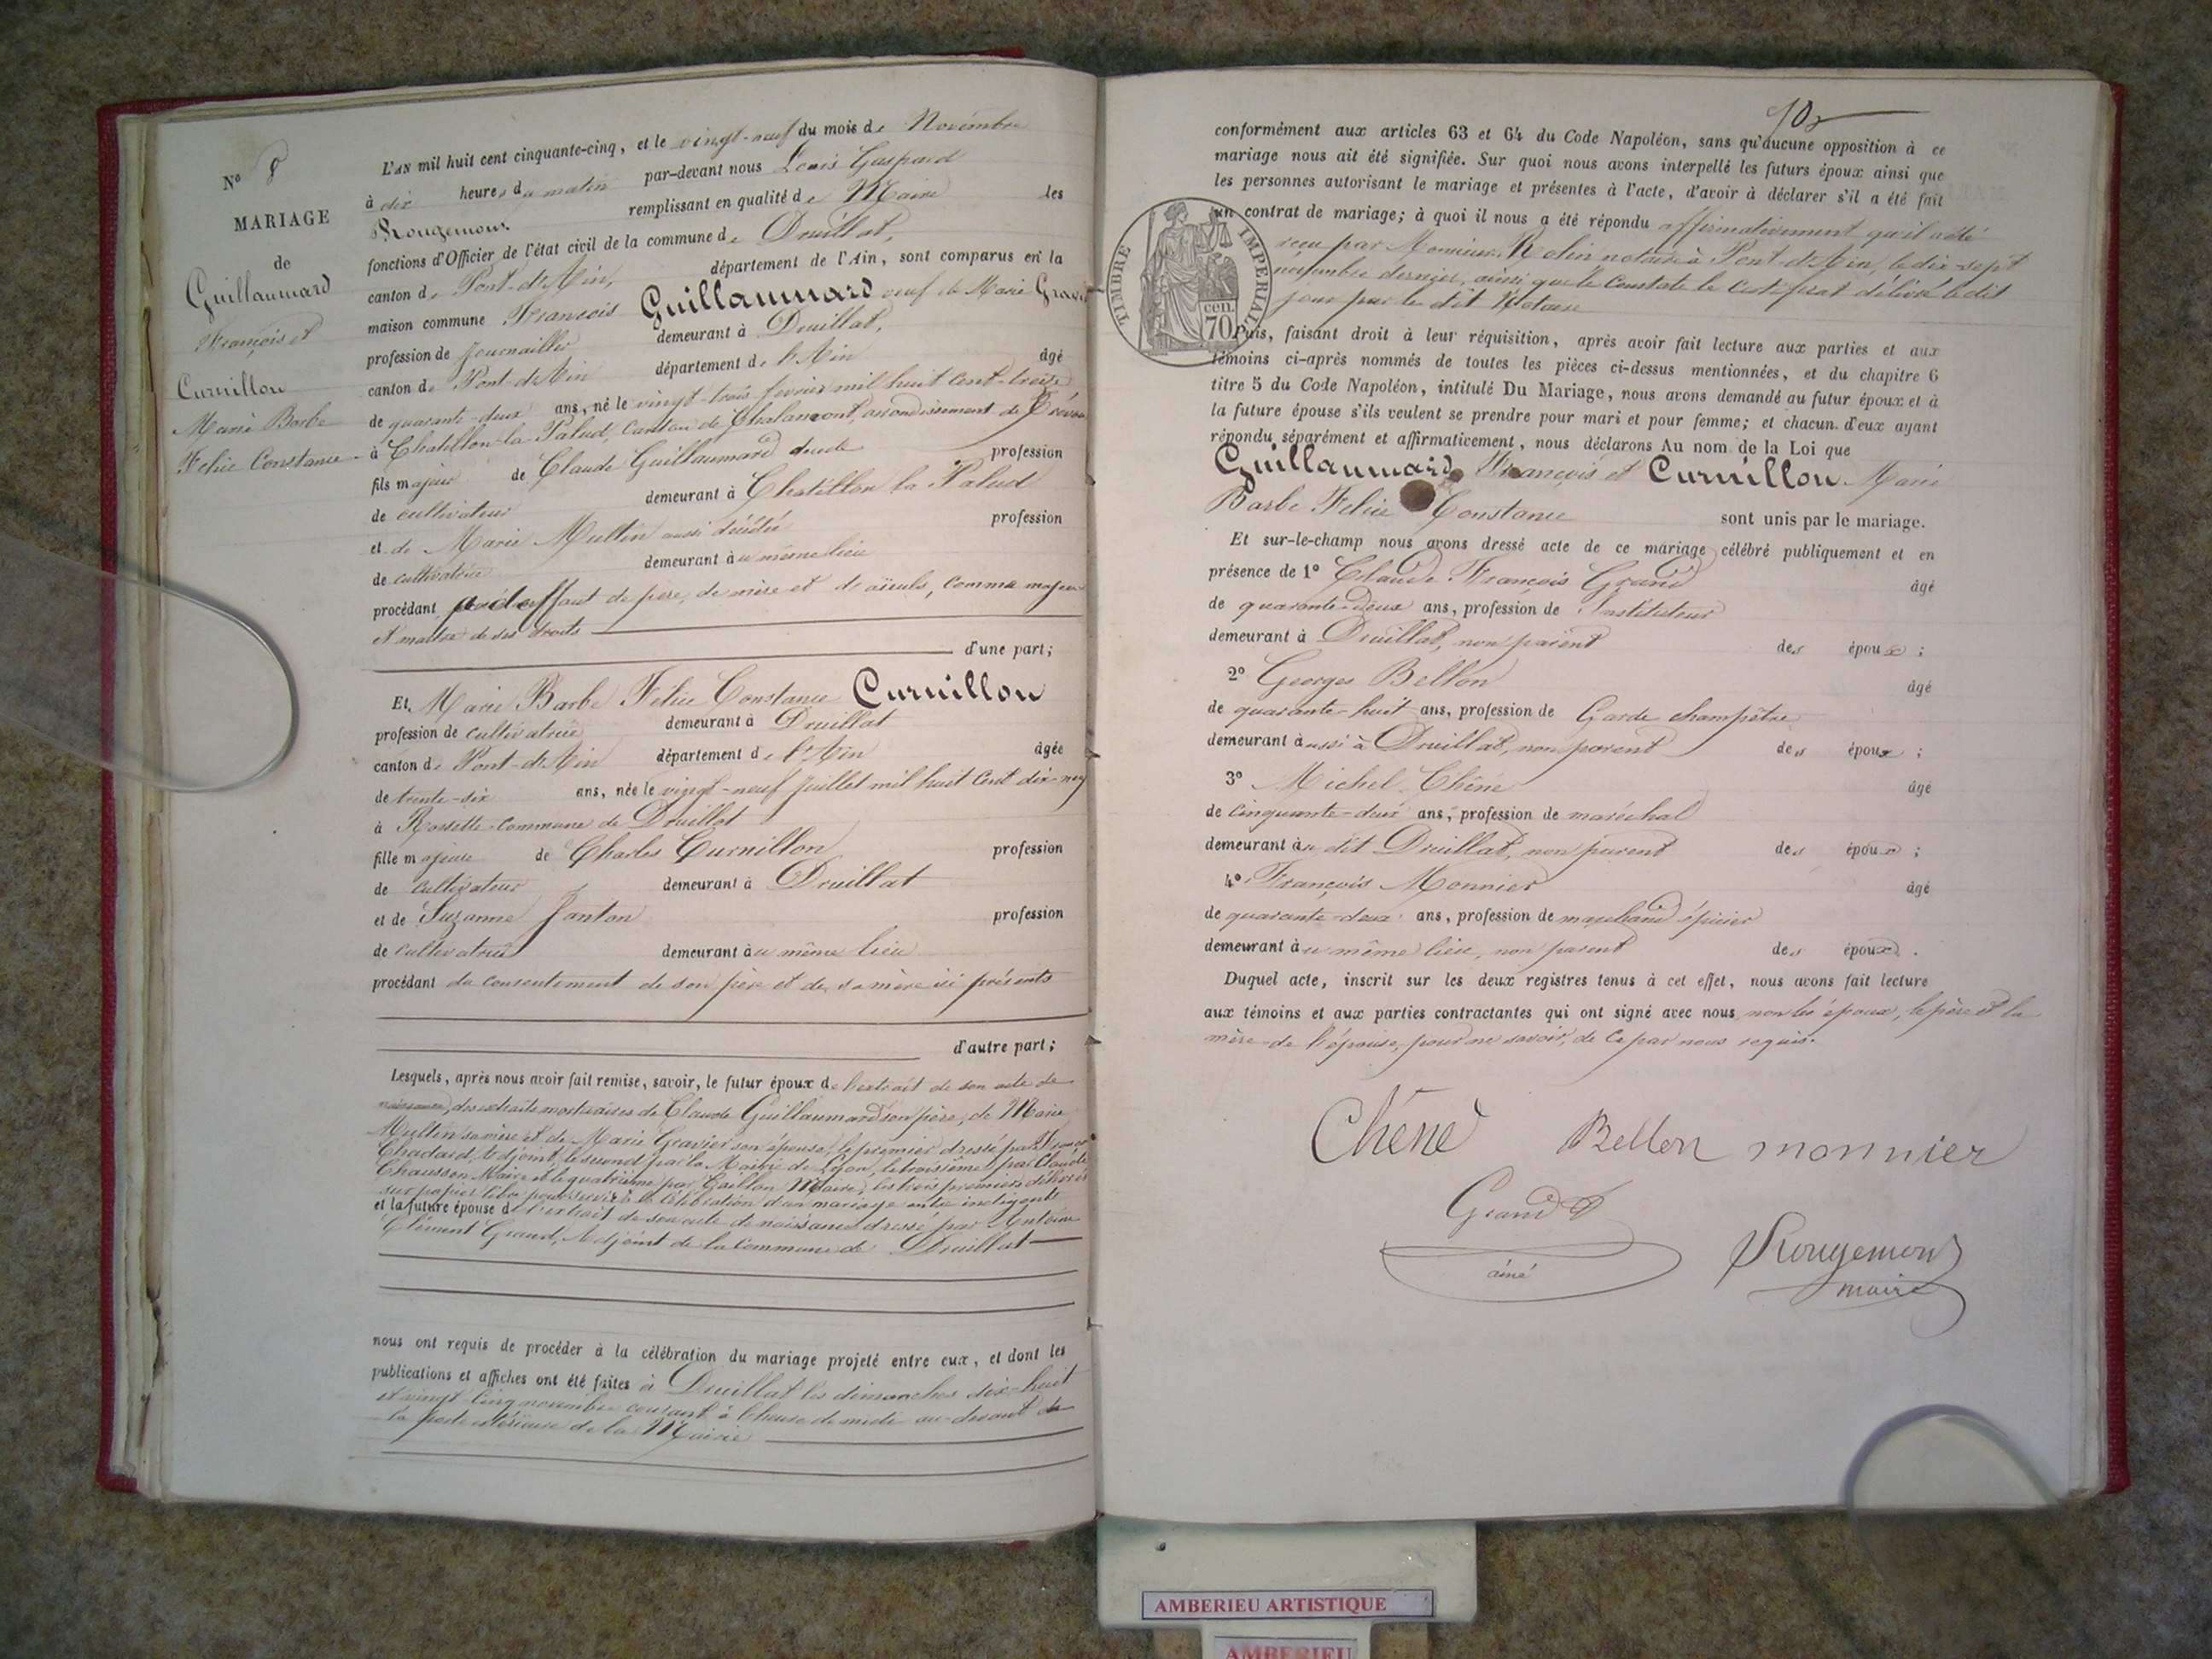 N° 8
MARIAGE
de
Guillaumard
François et
Curnillon
Marie Barbe
Felice Constance
L'AN mil huit cent cinquante-cinq, et le vingt-neuf du mois de Novembre
à dix heures du matin par-devant nous Louis Gaspard
Rougemont remplissant en qualité de Maire les
fonctions d'Officier de l'état civil de la commune de Druillat,
canton de Pont-d'Ain, département de l'Ain, sont comparus en la
maison commune François Guillaumard veuf de Marie Gravier
profession de Journailler demeurant à Druillat,
canton de Pont-d'Ain département de l'Ain âgé
de quarante-deux ans, né le vingt-trois février mil huit cent treize
à Chatillon-la-Palud, canton de Chalamont, arrondissement de Trévoux
fils majeur de Claude Guillaumard profession
de cultivateur demeurant à Chatillon la Palud
et de Marie Multin aussi décédée profession
de cultivatrice demeurant au même lieu
procédant à défaut de père, de mère et d'aïeuls, comme majeur
et maître de ses droits
d'une part;
Et Marie Barbe Felice Constance Curnillon
profession de cultivatrice demeurant à Druillat
canton de Pont-d'Ain département de l'Ain âgée
de trente-six ans, née le vingt-neuf juillet mil huit cent dix-neuf
à Rossette commune de Druillat
fille majeure de Charles Curnillon profession
de cultivateur demeurant à Druillat
et de Suzanne Janton profession
de cultivatrice demeurant au même lieu
procédant du consentement de son père et de sa mère ici présents
d'autre part;
Lesquels, après nous avoir fait remise, savoir, le futur époux de l'extrait de son acte de
naissance, des extraits mortuaires de Claude Guillaumard son père, de Marie
Multin sa mère et de Marie Gravier son épouse, le premier dressé par
Chadard, Adjoint, le second par la Mairie de Lyon, le troisième par Claude
Chausson Maire et le quatrième par Gaillon Maire, les trois premiers délivrés
sur papier libre pour servir à la célébration d'un mariage entre indigents
et la future épouse de l'extrait de son acte de naissance dressé par Antoine
Clément Grand, Adjoint de la commune de Druillat
nous ont requis de procéder à la célébration du mariage projeté entre eux, et dont les
publications et affiches ont été faites à Druillat les dimanches dix-huit
et vingt cinq novembre courant à l'heure de midi au-devant de
la porte extérieure de la Mairie
conformément aux articles 63 et 64 du Code Napoléon, sans qu'aucune opposition à ce
mariage nous ait été signifiée. Sur quoi nous avons interpellé les futurs époux ainsi que
les personnes autorisant le mariage et présentes à l'acte, d'avoir à déclarer s'il a été fait
un contrat de mariage; à quoi il nous a été répondu affirmativement qu'il a été
reçu par Monsieur Rolin notaire à Pont-d'Ain, le dix-sept
novembre dernier, ainsi que le constate le certificat délivré le dit
jour par le dit Notaire
TIMBRE IMPERIAL
70 cen.
Puis, faisant droit à leur réquisition, après avoir fait lecture aux parties et aux
témoins ci-après nommés de toutes les pièces ci-dessus mentionnées, et du chapitre 6
titre 5 du Code Napoléon, intitulé Du Mariage, nous avons demandé au futur époux et à
la future épouse s'ils veulent se prendre pour mari et pour femme; et chacun d'eux ayant
répondu séparément et affirmativement, nous déclarons Au nom de la Loi que
Guillaumard François et Curnillon Marie
Barbe Felice Constance sont unis par le mariage.
Et sur-le-champ nous avons dressé acte de ce mariage célébré publiquement et en
présence de 1° Claude François Grand âgé
de quarante-deux ans, profession de Instituteur
demeurant à Druillat, non parent des époux;
2° Georges Bellon âgé
de quarante-huit ans, profession de Garde champêtre
demeurant aussi à Druillat, non parent des époux;
3° Michel Chêne âgé
de cinquante-deux ans, profession de maréchal
demeurant au dit Druillat, non parent des époux;
4° François Monnier âgé
de quarante-deux ans, profession de marchand épicier
demeurant au même lieu, non parent des époux.
Duquel acte, inscrit sur les deux registres tenus à cet effet, nous avons fait lecture
aux témoins et aux parties contractantes qui ont signé avec nous non les époux, le père et la
mère de l'épouse, pour ne savoir, de ce par nous requis.
Chêne Bellon monnier
Grand
ainé
Rougemont
maire
AMBERIEU ARTISTIQUE
AMBERIEU